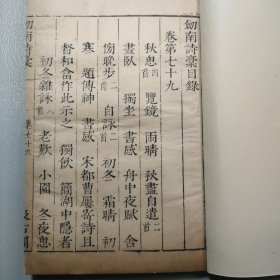 劒南詩槀目錄
卷第七十九
秋思四首 覽鏡 雨晴 秋盡自遣二首
晝臥 獨坐 書感 舟中夜賦 舍
傍晚步二首 自詠二首 初冬 霜晴 初
寒 題傳神 書感 宋都曹屢寄詩且
督和答作此示之 獨飲 簡湖中隱者
初冬雜詠八首 老歎 小園 冬夜思
劒南詩槀
卷七十九
汲古閣